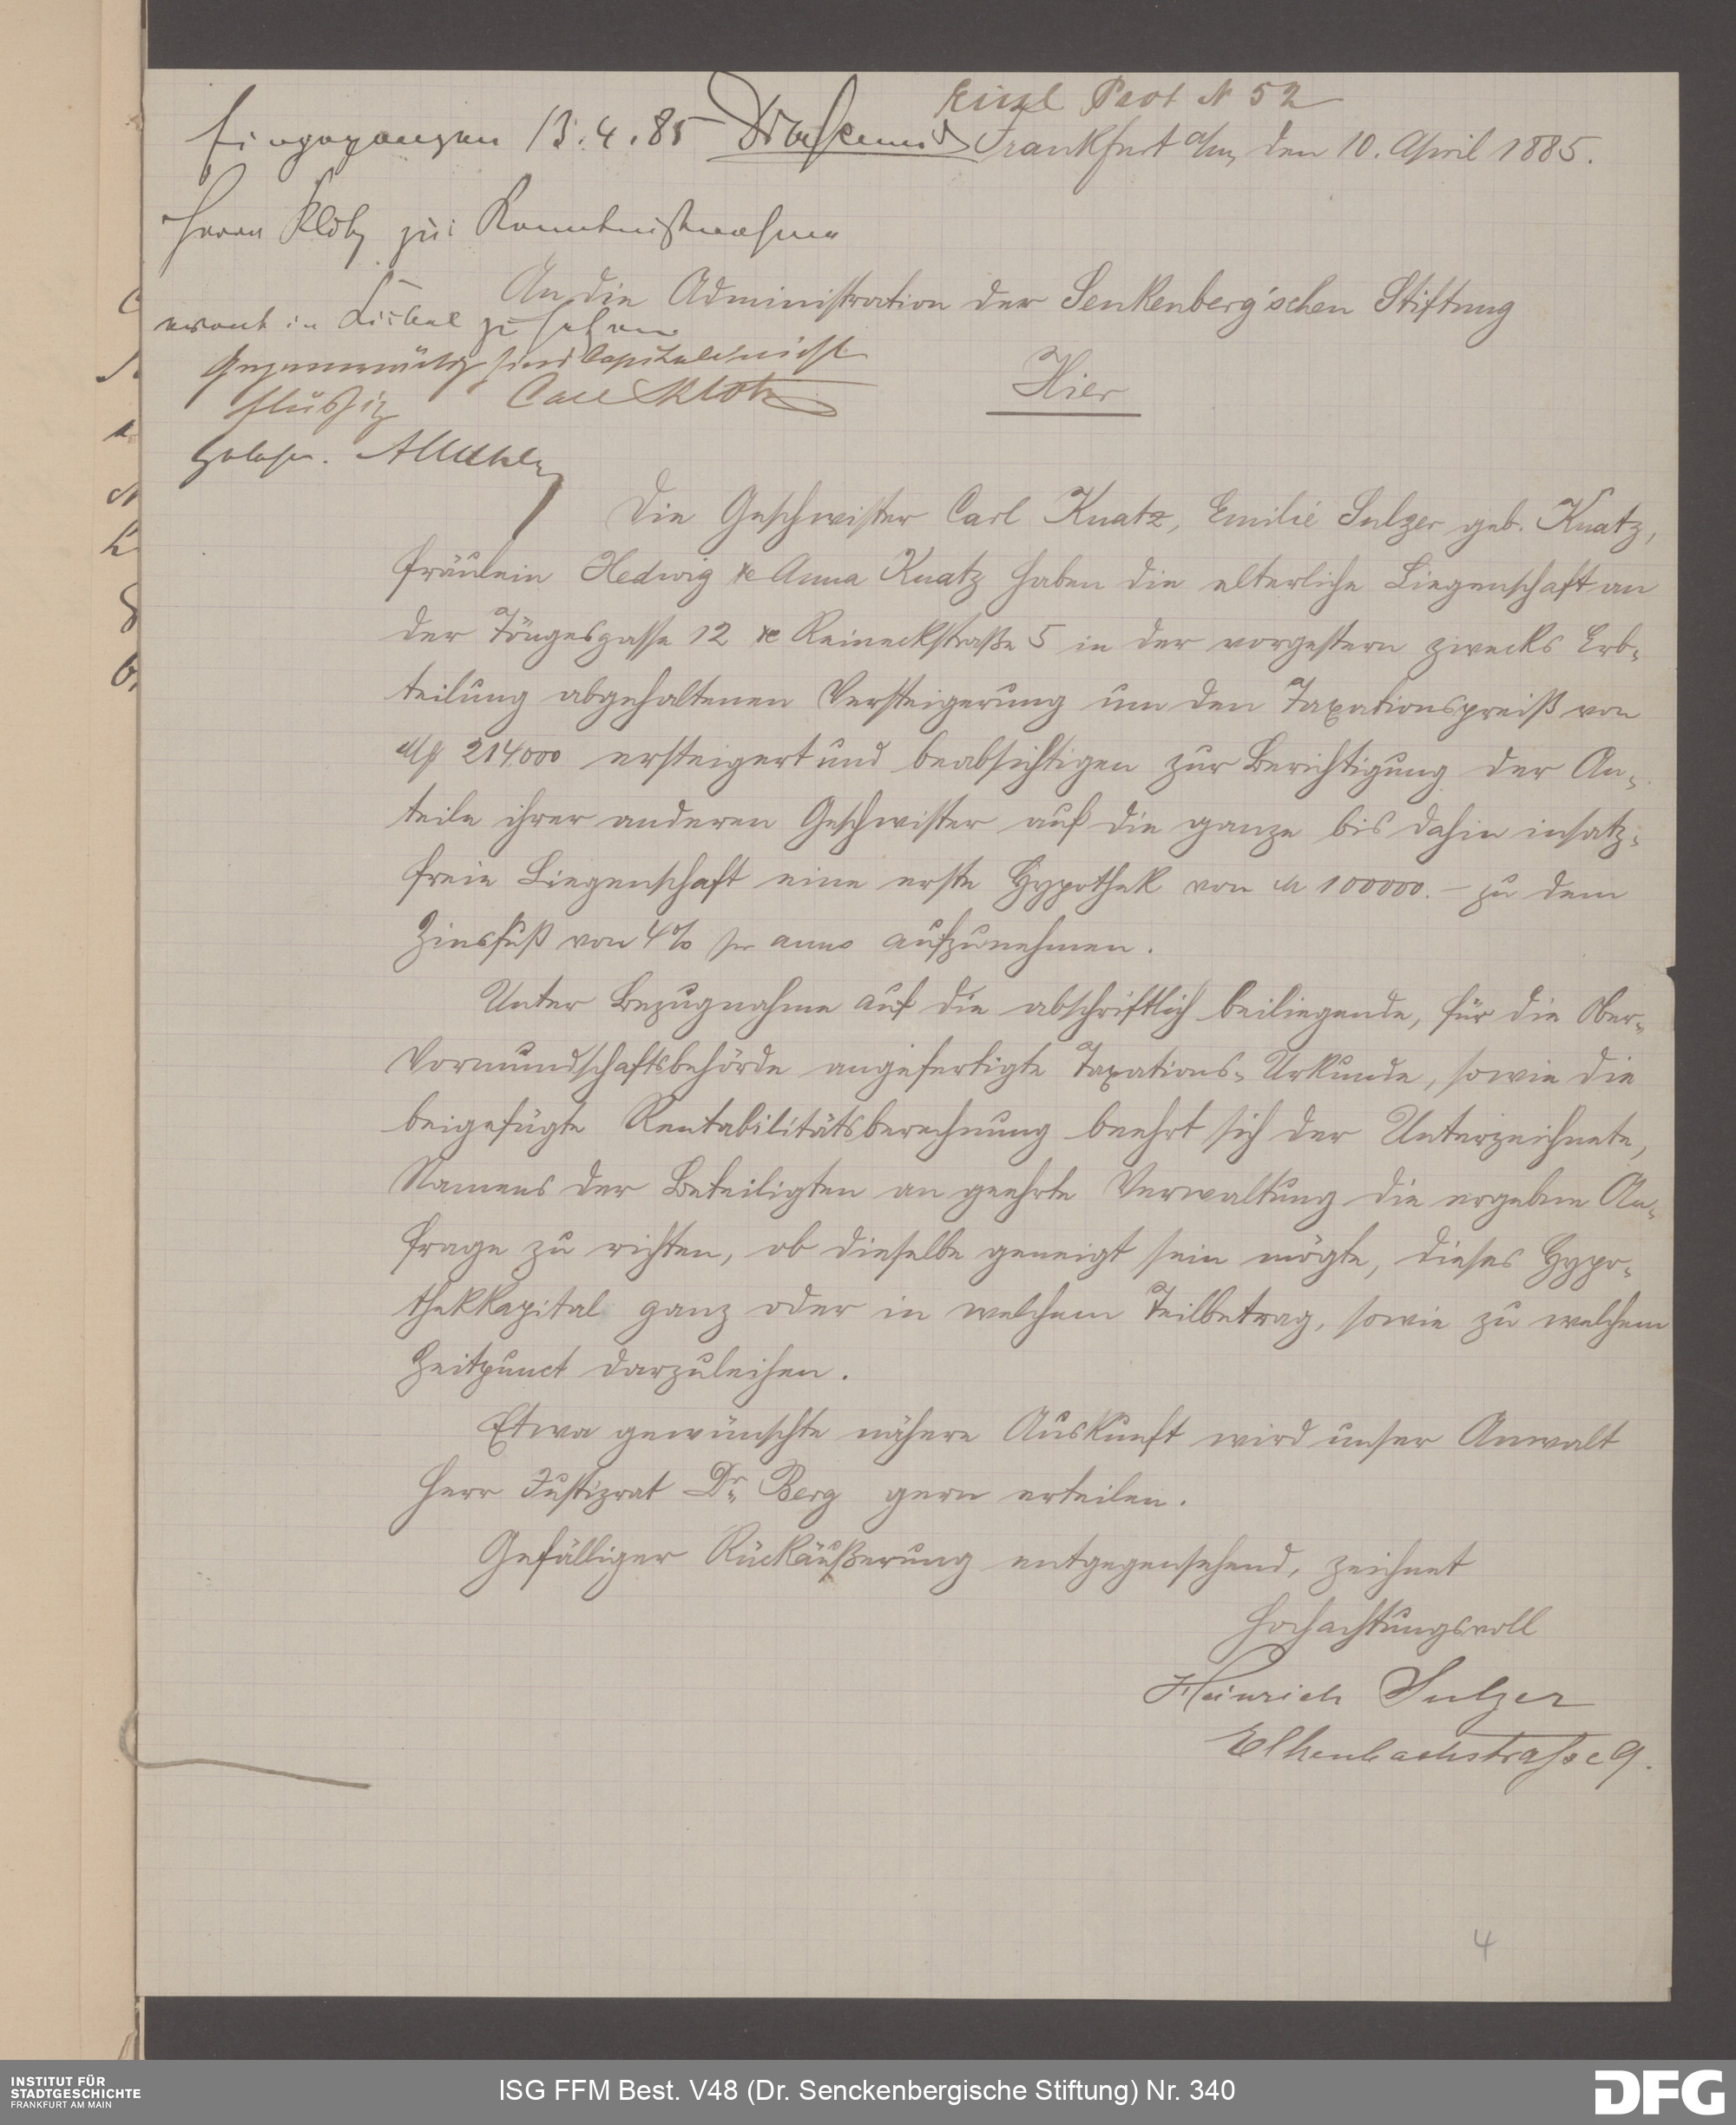 Einzl Prot N 52
Eingegangen 13.4.85
Frankfurt a/m, den 10. April 1885.
Herrn Kloß zur Kenntnißnahme
An die Administration der Senkenberg'schen Stiftung
zu
Gegenwärtig sind Capitalien nicht
flüssig Carl Klotz
Hier
Gelesen.
Die Geschwister Carl Knatz, Emilie Sulzer geb. Knatz,
Fräulein Hedwig & Anna Knatz haben die elterliche Liegenschaft an
der Töngesgasse 12 & Reineckstraße 5 in der vorgestern zwecks Erb-
teilung abgehaltenen Versteigerung um den Taxationspreiß von
M 214000 ersteigert und beabsichtigen zur Berichtigung der An-
teile ihrer anderen Geschwister auf die ganze bis dahin insatz-
freie Liegenschaft eine erste Hypothek von M 100000.– zu dem
Zinsfuß von 4% per anno aufzunehmen.
Unter Bezugnahme auf die abschriftlich beiliegende, für die Ober-
Vormundschaftsbehörde angefertigte Taxations-Urkunde, sowie die
beigefügte Rentabilitätsberechnung beehrt sich der Unterzeichnete,
Namens der Beteiligten an geehrte Verwaltung die ergebene An-
frage zu richten, ob dieselbe geneigt sein mögte, dieses Hypo-
thekkapital ganz oder in welchem Teilbetrag, sowie zu welchem
Zeitpunct darzuleihen.
Etwa gewünschte nähere Auskunft wird unser Anwalt
Herr Justizrat Dr. Berg gern erteilen.
Gefälliger Rückäußerung entgegensehend, zeichnet
Hochachtungsvoll
Heinrich Sulzer
Elkenbachstrasse 9.
4
INSTITUT FÜR
STADTGESCHICHTE
FRANKFURT AM MAIN
ISG FFM Best. V48 (Dr. Senckenbergische Stiftung) Nr. 340
DFG